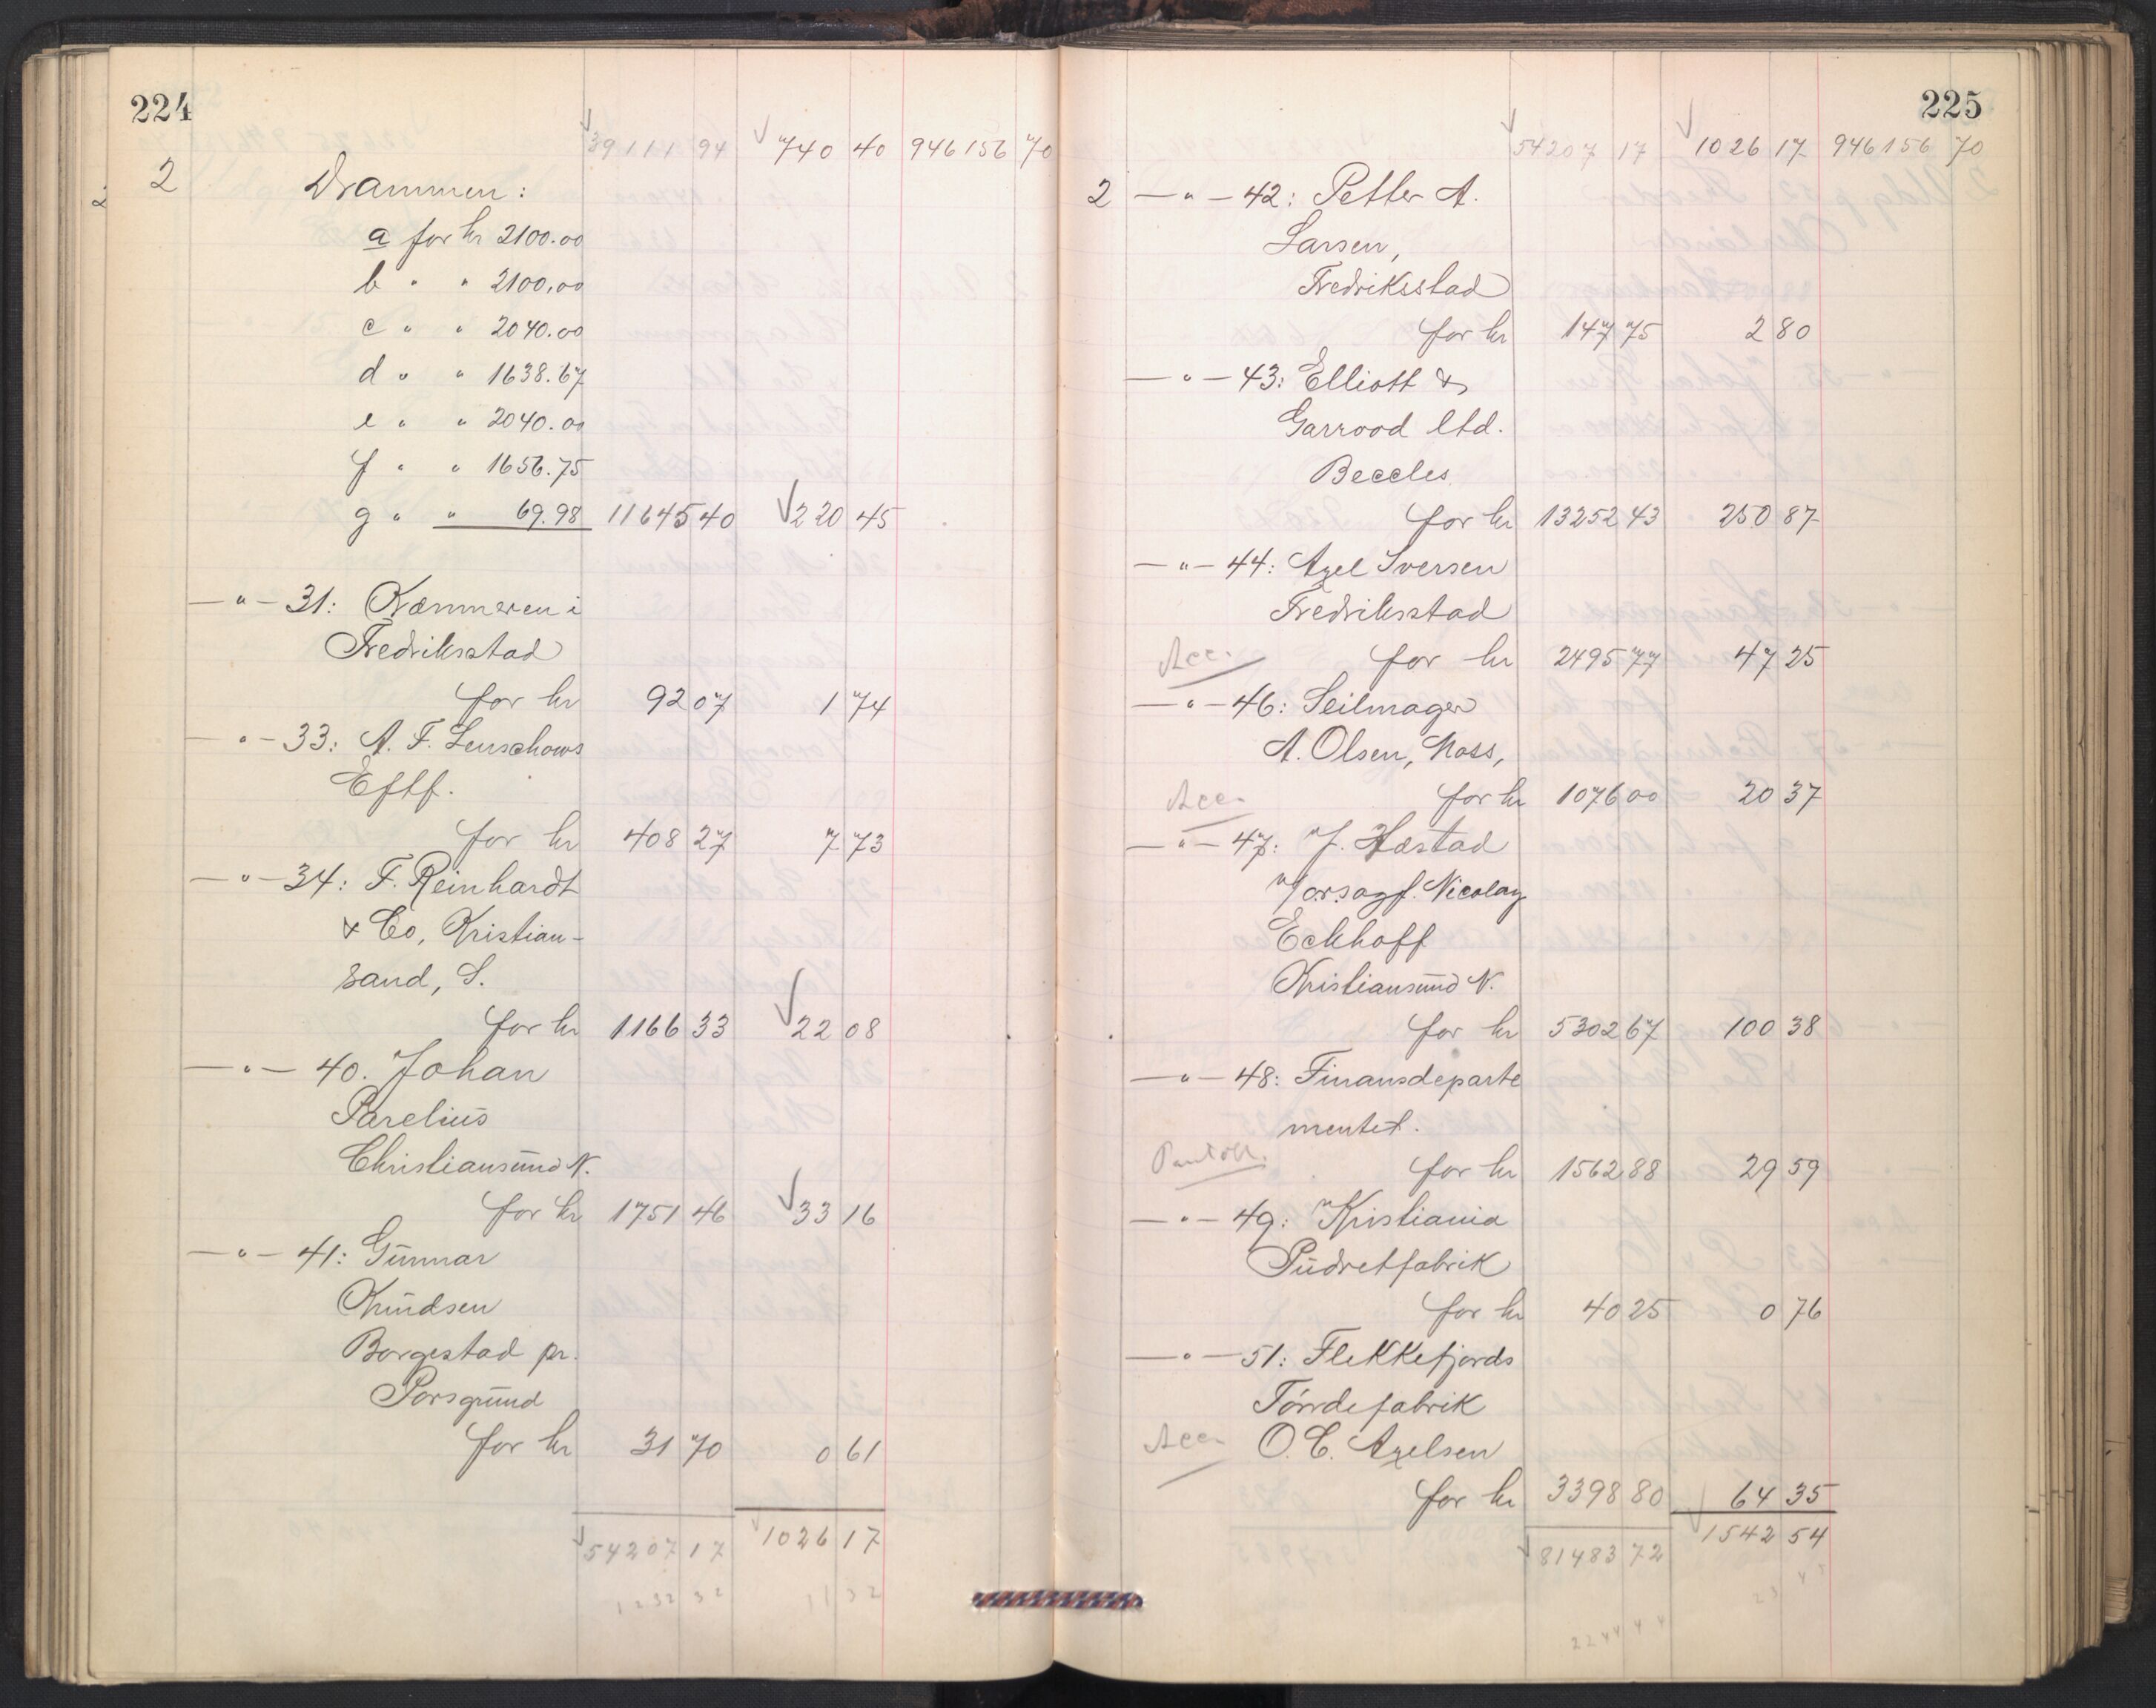 224
39111 94 740 40 946156 70
2 Drammen:
a for kr 2100.00
b " " 2100.00
c " " 2040.00
d " " 1638.67
e " " 2040.00
f " " 1656.75
g " " 69.98 11645 40 220 45
— " — 31: Kæmneren i
Fredriksstad
for kr 92 07 1 74
— " — 33: A. F. Lenschows
Eftf.
for kr 408 27 7 73
— " — 34: F. Reinhardt
& Co, Kristian-
sand, S.
for kr 1166 33 22 08
— " — 40. Johan
Parelius
Christiansund N.
for kr 1751 46 33 16
— " — 41: Gunnar
Knudsen
Borgestad pr.
Porsgrund
for kr 31 70 0 61
54207 17 1026 17
1232 32 1132
225
54207 17 1026 17 946156 70
2 — " — 42: Petter A.
Larsen,
Fredriksstad
for kr 147 75 2 80
— " — 43: Elliott &
Garrood ltd.
Beccles
for kr 13252 43 250 87
— " — 44: Axel Iversen
Fredriksstad
Acc. for kr 2495 77 47 25
— " — 46: Seilmager
A. Olsen, Moss,
Acc. for kr 1076 00 20 37
— " — 47: J. Hæstad
v/o.r.sagf. Nicolay
Eckhoff
Kristiansund N.
for kr 5302 67 100 38
— " — 48: Finansdeparte
mentet.
for kr 1562 88 29 59
— " — 49: Kristiania
Pudretfabrik
for kr 40 25 0 76
— " — 51: Flekkefjords
Tøndefabrik
Acc. O. C. Axelsen
for kr 3398 80 64 35
81483 72 1542 54
2244 44 23 45